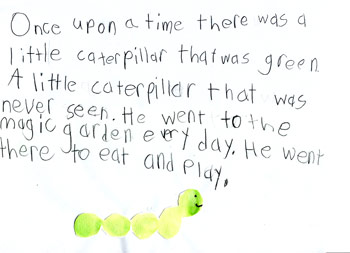 Once upon a time there was a
little caterpillar that was green
A little caterpillar that was
never seen. He went to the
magic garden every day. He went
there to eat and play.